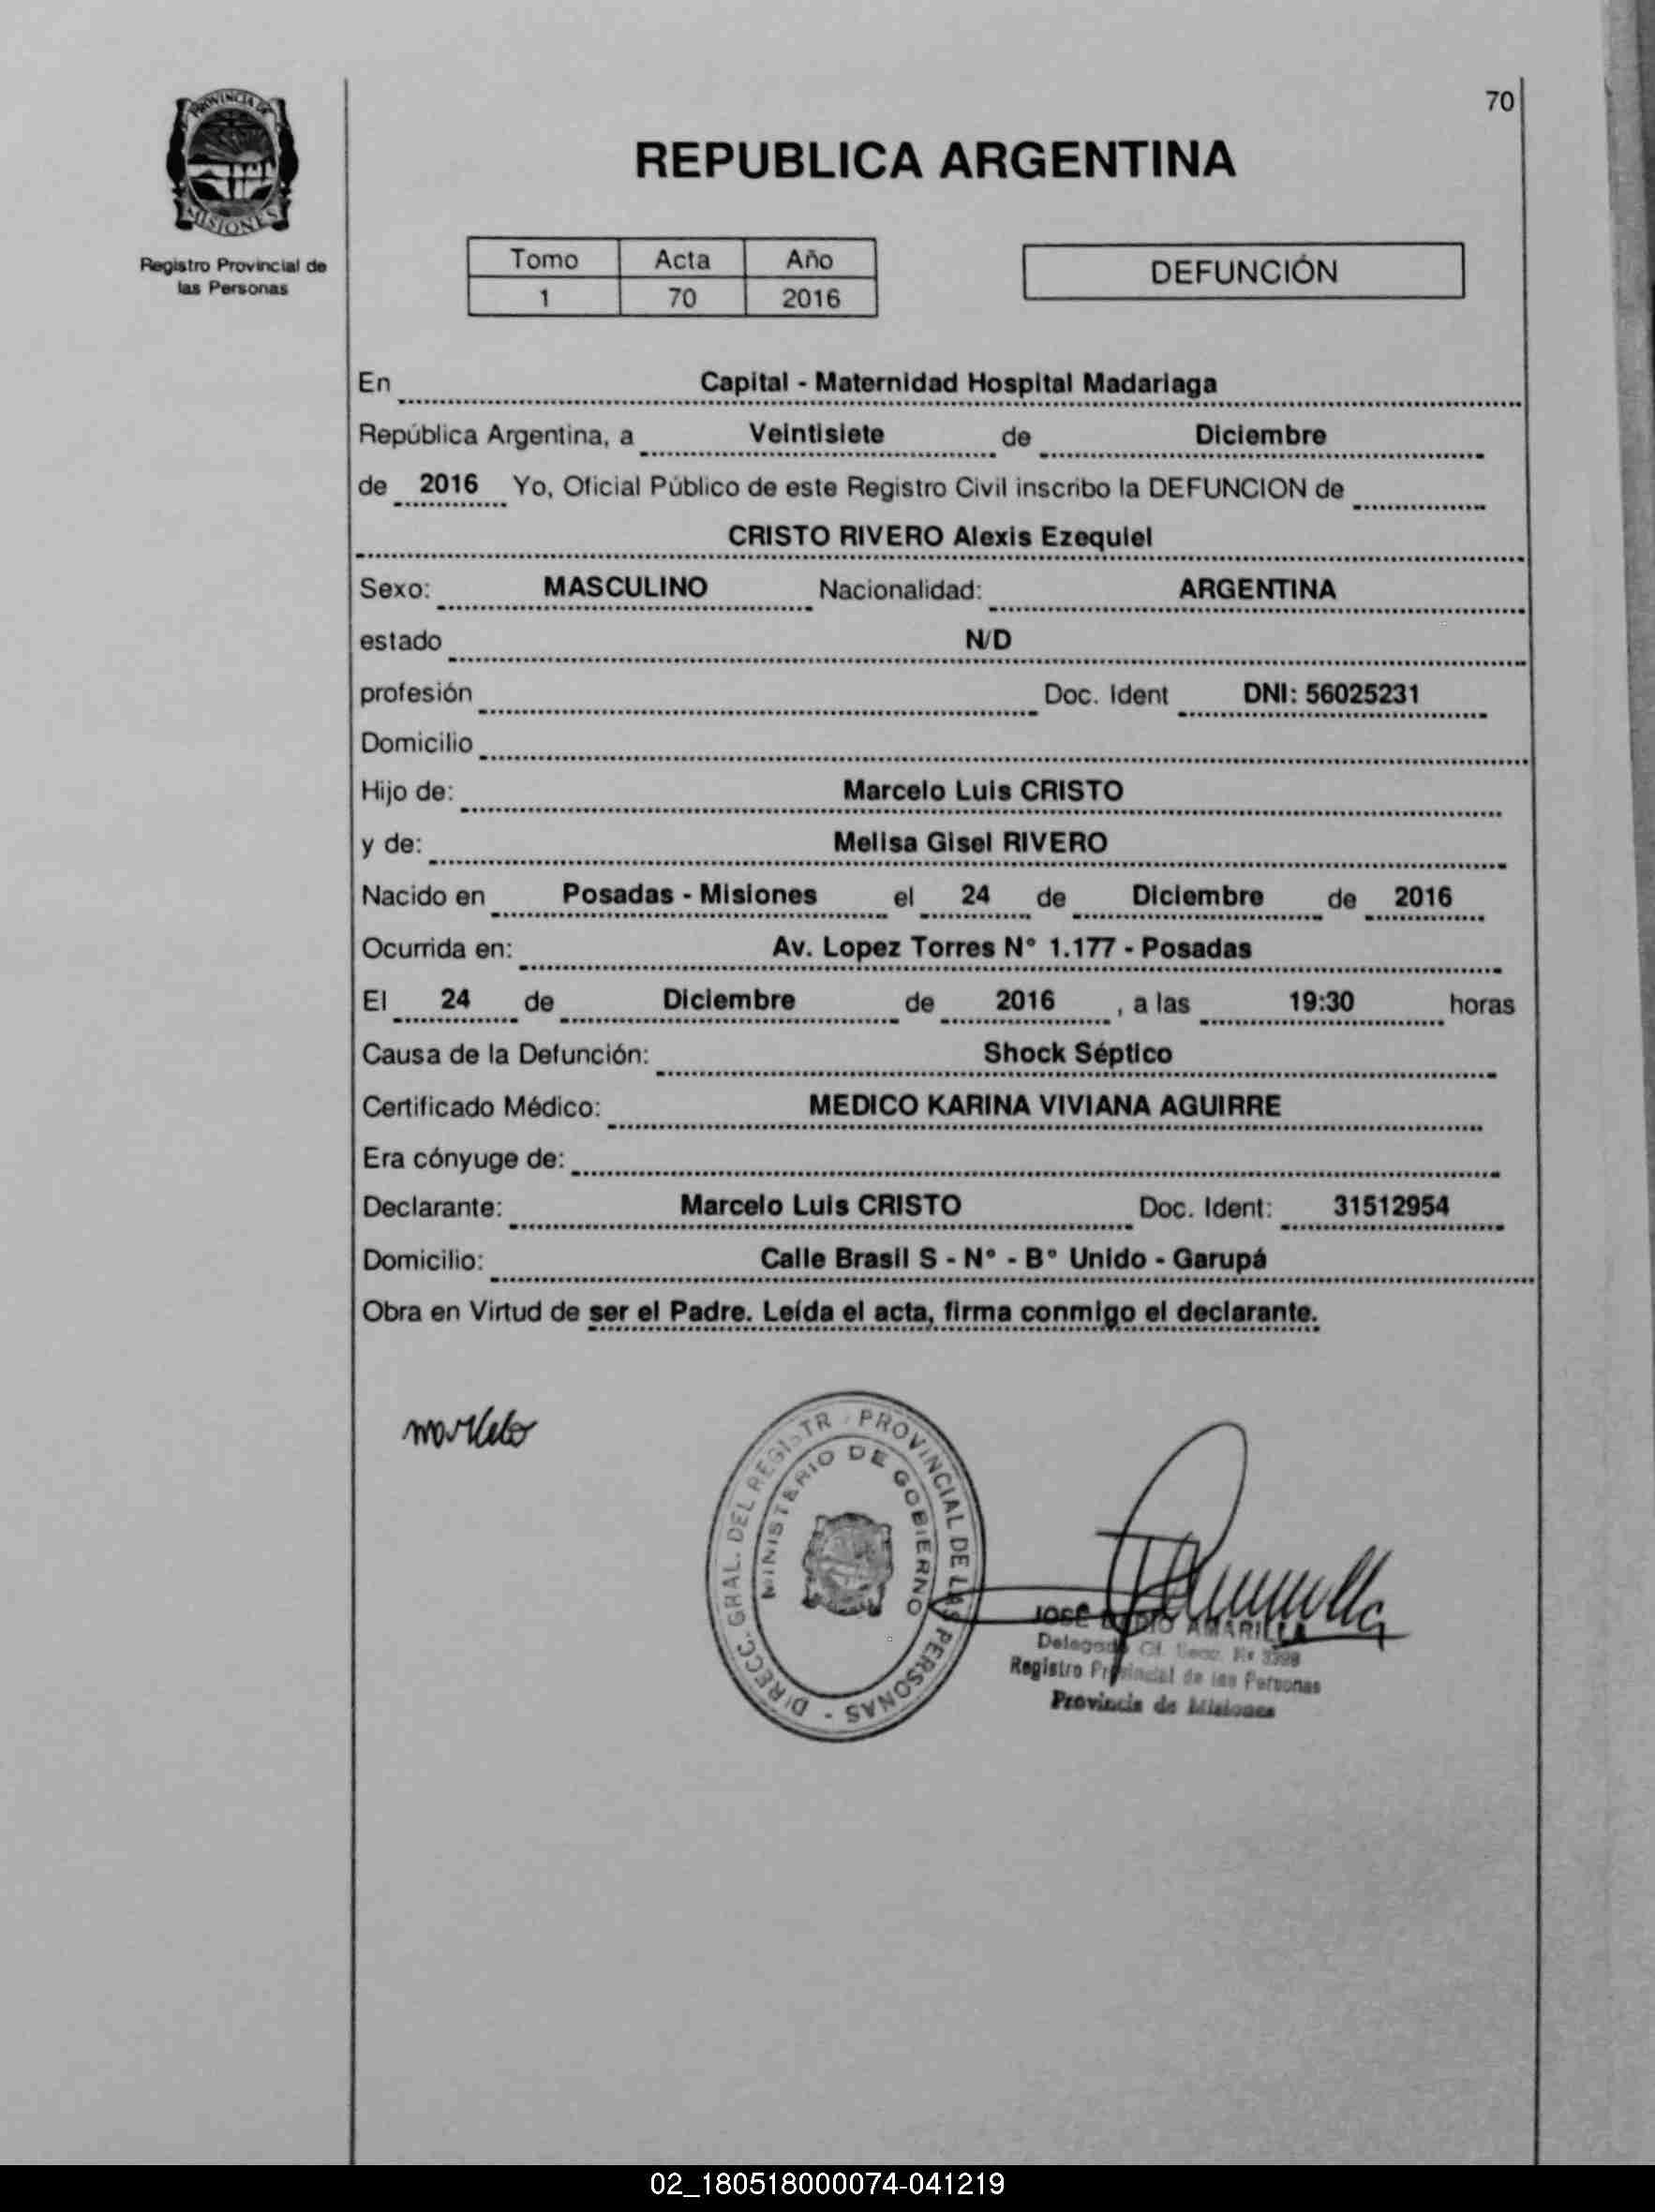 70
PROVINCIA DE
MISIONES
Registro Provincial de
las Personas
REPUBLICA ARGENTINA
Tomo Acta Año
1 70 2016
DEFUNCIÓN
En Capital - Maternidad Hospital Madariaga
República Argentina, a Veintisiete de Diciembre
de 2016 Yo, Oficial Público de este Registro Civil inscribo la DEFUNCION de
CRISTO RIVERO Alexis Ezequiel
Sexo: MASCULINO Nacionalidad: ARGENTINA
estado N/D
profesión Doc. Ident DNI: 56025231
Domicilio
Hijo de: Marcelo Luis CRISTO
y de: Melisa Gisel RIVERO
Nacido en Posadas - Misiones el 24 de Diciembre de 2016
Ocurrida en: Av. Lopez Torres N° 1.177 - Posadas
El 24 de Diciembre de 2016 , a las 19:30 horas
Causa de la Defunción: Shock Séptico
Certificado Médico: MEDICO KARINA VIVIANA AGUIRRE
Era cónyuge de:
Declarante: Marcelo Luis CRISTO Doc. Ident: 31512954
Domicilio: Calle Brasil S - N° - B° Unido - Garupá
Obra en Virtud de ser el Padre. Leída el acta, firma conmigo el declarante.
DIRECC. GRAL. DEL REGISTR PROVINCIAL DE LAS PERSONAS -
MINISTERIO DE GOBIERNO
JOSE AMARILLA
Registro Provincial de las Personas
Provincia de Misiones
02_180518000074-041219